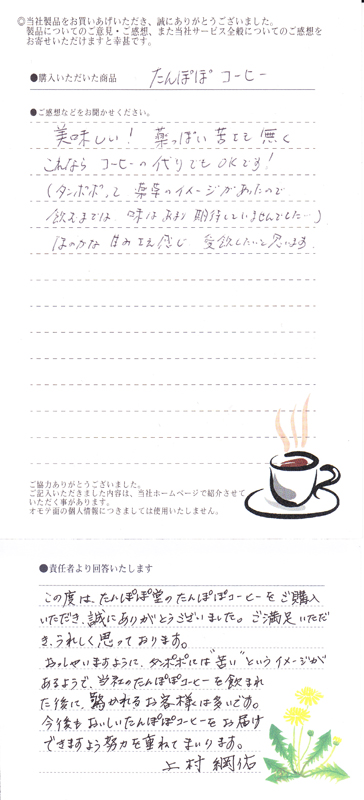 ◎当社製品をお買いあげいただき、誠にありがとうございました。
製品についてのご意見・ご感想、また当社サービス全般についてのご感想を
お寄せいただけますと幸甚です。
●購入いただいた商品
たんぽぽ コーヒー
●ご感想などをお聞かせください。
美味しい! 薬っぽい苦さも無く
これなら コーヒーの代りでもOKです!
(タンポポって 薬草のイメージがあったので
飲むまでは 味はあまり期待していませんでした…)
ほのかな 甘みさえ感じ 愛飲したいと思います.
ご協力ありがとうございました。
ご記入いただきました内容は、当社ホームページで紹介させて
いただく事があります。
オモテ面の個人情報につきましては使用いたしません。
●責任者より回答いたします
この度は、たんぽぽ堂のたんぽぽコーヒーをご購入
いただき、誠にありがとうございました。ご満足いただ
き、うれしく思っております。
おっしゃいますように、タンポポには"苦い"というイメージが
あるようで、当社のたんぽぽコーヒーを飲まれ
た後に、驚かれるお客様は多いです。
今後もおいしいたんぽぽコーヒーをお届け
できますよう努力を重ねてまいります。
上村 綱佑